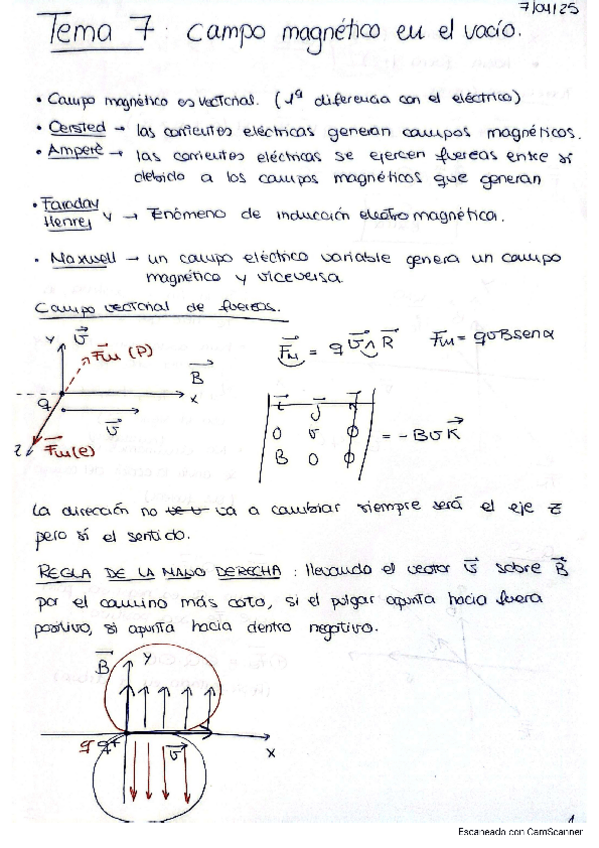 7/04/25
Tema 7: Campo magnético en el vacío.
• Campo magnético es vectorial. (1ª diferencia con el eléctrico)
• Oersted → las corrientes eléctricas generan campos magnéticos.
• Amperè → las corrientes eléctricas se ejercen fuerzas entre sí
debido a los campos magnéticos que generan
• Faraday y
Henrej → Fenómeno de inducción electromagnética.
• Maxwell → un campo eléctrico variable genera un campo
magnético y viceversa
Campo vectorial de fuerzas.
y v⃗
F⃗m (P)
B⃗
x
q
v⃗
z F⃗m(e)
F⃗m = q v⃗ ∧ B⃗ Fm = qvBsenα
i⃗ j⃗ k⃗
0 v 0
B 0 0
= -Bv k⃗
La dirección no va a cambiar siempre será el eje z
pero sí el sentido.
REGLA DE LA MANO DERECHA: llevando el vector v⃗ sobre B⃗
por el camino más coto, si el pulgar apunta hacia fuera
positivo, si apunta hacia dentro negativo.
B⃗ y
q⁺ v⃗
x
1
Escaneado con CamScanner